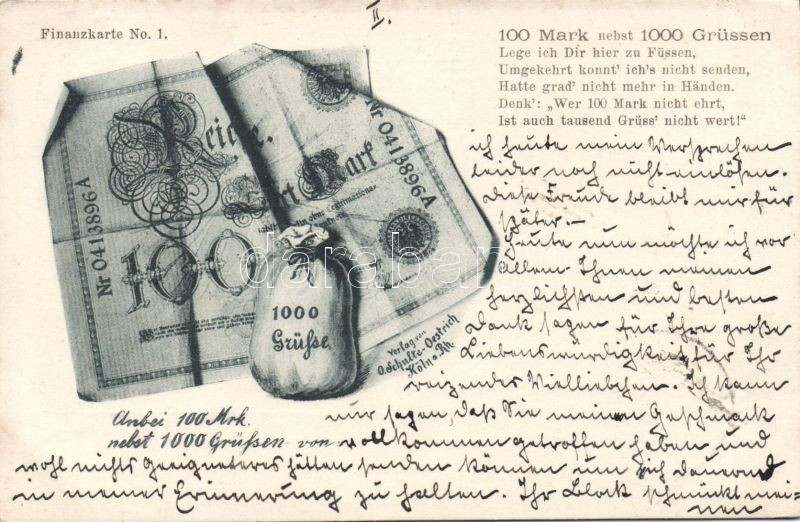 II.
Finanzkarte No. 1.
100 Mark nebst 1000 Grüssen
Lege ich Dir hier zu Füssen,
Umgekehrt konnt' ich's nicht senden,
Hatte grad' nicht mehr in Händen.
Denk': „Wer 100 Mark nicht ehrt,
Ist auch tausend Grüss' nicht wert!"
Reich
Mark
Nr 0413896A
Nr 0413896A
100
1000
Grüße.
Verlag von
O. Schulte-Oestrich
Köln a. Rh.
darabanth
Anbei 100 Mrk.
nebst 1000 Grüßen von
ich heute mein Versprechen
leider noch nicht einlösen.
Diese Freude bleibt mir für
später.-
Heute nun möchte ich vor
Allem Ihnen meinen
herzlichsten und besten
Dank sagen für Ihre große
Liebenswürdigkeit für Ihr
reizendes Vielliebchen. Ich kann
nur sagen, daß Sie meinen Geschmack
vollkommen getroffen haben und
wohl nichts Geeigneteres hätten senden können um sich dauernd
in meiner Erinnerung zu halten. Ihr Block schmückt mei-
nen